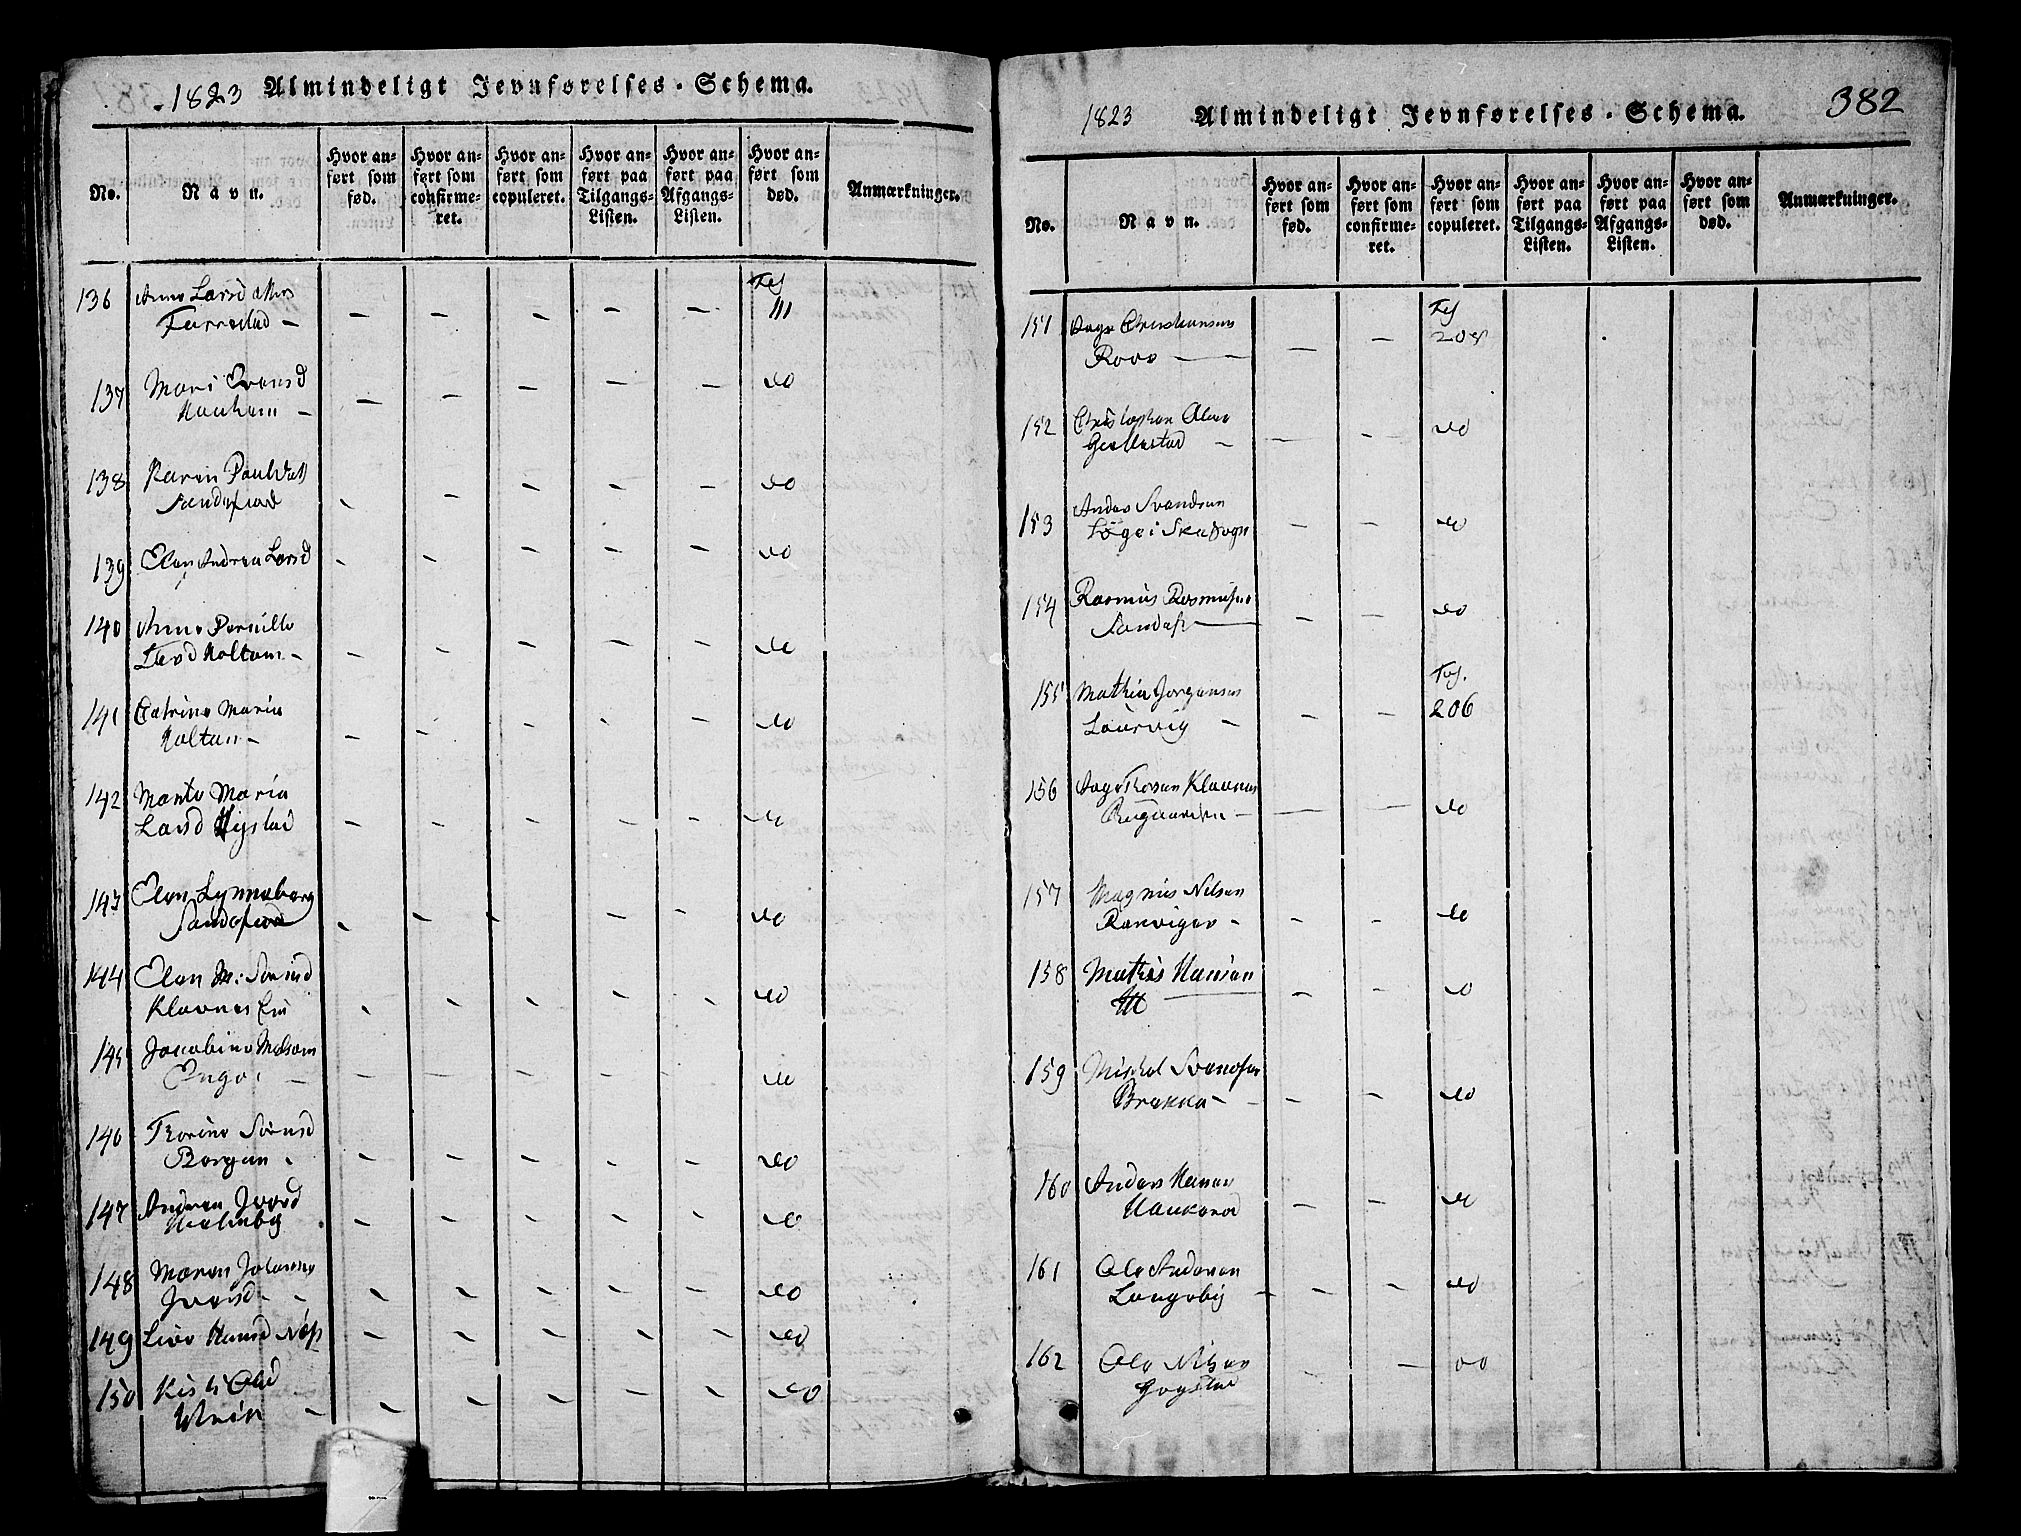 1823 Almindeligt Jevnførelses-Schema.
No.
Navn.
Hvor anført som fød.
Hvor anført som confirmeret.
Hvor anført som copuleret.
Hvor anført paa Tilgangs-Listen.
Hvor anført paa Afgangs-Listen.
Hvor anført som død.
Anmærkninger.
136 Anne Larsdatter - - - - - Fol
Furrestad - 111
137 Mari - - - - - do
Hauham -
138 Karen Paulsdatt - - - - - do
Sandefiord
139 Elen Andrea Larsd - - - - - do
140 Anne Pernille
Larsd Holtam - - - - - - do
141 Catrine Maria
Holtan - - - - - - do
142 Marte Maria
Larsd Hystad - - - - - do
143 Elen Lynneberg
Sandefiord - - - - - do
144 Elen M: Sørensd
Klavnes Eie - - - - - do
145 Jacobine Melsom
Engø - - - - - - do
146 Thorine Sørensd
Bergan - - - - - do
147 Andrea Iversd
Hielmby - - - - - do
148 Maren Johanne
Iversd - - - - - - do
149 Live Hansd Næss - - - - - do
150 Kisti Olsd - - - - - do
Wein -
1823 Almindeligt Jevnførelses-Schema. 382
No.
Navn.
Hvor anført som fød.
Hvor anført som confirmeret.
Hvor anført som copuleret.
Hvor anført paa Tilgangs-Listen.
Hvor anført paa Afgangs-Listen.
Hvor anført som død.
Anmærkninger.
151 Aage Christiansen Fol
Rove - - - 205
152 Christopher Olsen - - do
Giellestad -
153 Anders Svendsen - - do
Løge i Skeesogn
154 Rasmus Rasmusen - - do
Sandef
155 Mathia Jørgensen Fol.
Laurvig - - - 206
156 Aage Thorsen Klavnes
- - do
157 Magnus Nelsen
Ranviger - - - do
158 Mathis Hansen - - do
159 Mickel Svendsen
Brekke - - - do
160 Anders Hansen
Haukerød - - do
161 Ole Andersen
Langeby - - - do
162 Ole Nilsen - - do
Gogstad